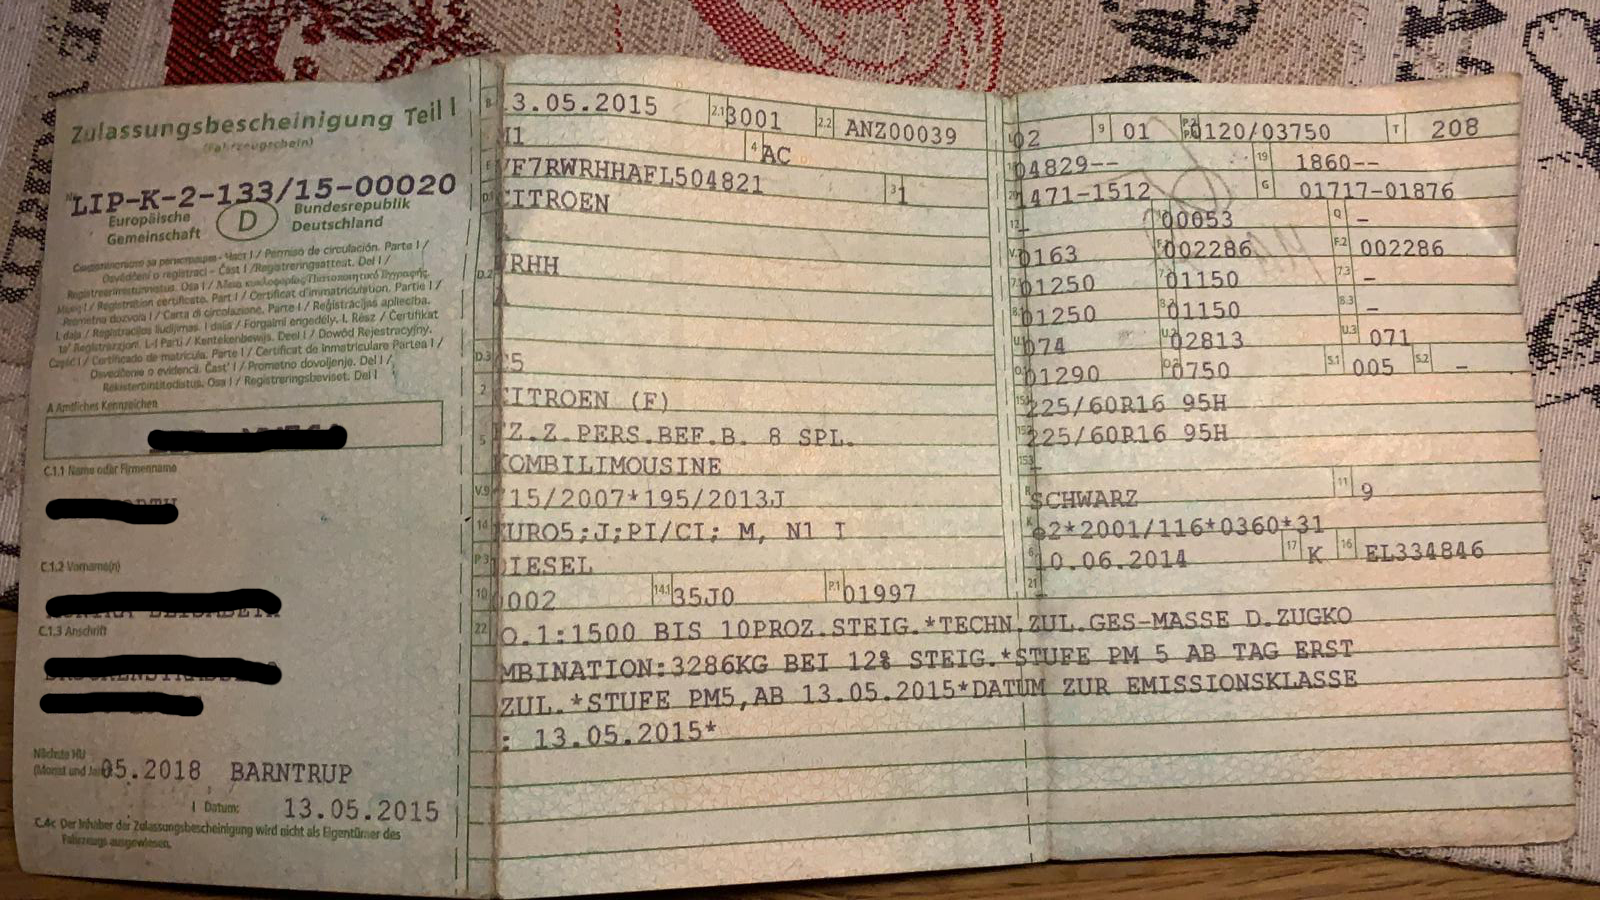 Zulassungsbescheinigung Teil I
(Fahrzeugschein)
LIP-K-2-133/15-00020
Europäische Gemeinschaft D Bundesrepublik Deutschland
Permiso de circulación. Parte I /
Osvědčení o registraci - Část I / Registreringsattest. Del I /
Registreerimistunnistus. Osa I /
Registration certificate. Part I / Certificat d'immatriculation. Partie I /
Prometna dozvola I / Carta di circolazione. Parte I / Reģistrācijas apliecība.
I. daļa / Registracijos liudijimas. I dalis / Forgalmi engedély. I. Rész / Ċertifikat
ta' Reġistrazzjoni. L-I Parti / Kentekenbewijs. Deel I / Dowód Rejestracyjny.
Część I / Certificado de matrícula. Parte I / Certificat de înmatriculare Partea I /
Osvedčenie o evidencii. Časť I / Prometno dovoljenje. Del I /
Rekisteröintitodistus. Osa I / Registreringsbeviset. Del I
A Amtliches Kennzeichen
C.1.1 Name oder Firmenname
C.1.2 Vorname(n)
C.1.3 Anschrift
Nächste HU
(Monat und 05.2018 BARNTRUP
I Datum: 13.05.2015
C.4c Der Inhaber der Zulassungsbescheinigung wird nicht als Eigentümer des
Fahrzeugs ausgewiesen.
B 3.05.2015 2.1 3001 2.2 ANZ00039
M1 4 AC
E VF7RWRHHAFL504821 3 1
D.1 CITROEN
D.2 RHH
D.3 C5
2 CITROEN (F)
5 FZ.Z.PERS.BEF.B. 8 SPL.
KOMBILIMOUSINE
V.9 715/2007*195/2013J
14 EURO5;J;PI/CI; M, N1 I
P.3 DIESEL
10 0002 14.1 35J0 P.1 01997
22 O.1:1500 BIS 10PROZ.STEIG.*TECHN.ZUL.GES-MASSE D.ZUGKO
MBINATION:3286KG BEI 12% STEIG.*STUFE PM 5 AB TAG ERST
ZUL.*STUFE PM5,AB 13.05.2015*DATUM ZUR EMISSIONSKLASSE
: 13.05.2015*
02 9 01 0120/03750 T 208
04829-- 19 1860--
1471-1512 G 01717-01876
12 - 00053 Q -
0163 002286 F.2 002286
01250 01150 7.3 -
01250 01150 8.3 -
074 U.2 02813 U.3 071
01290 0750 S.1 005 S.2 -
225/60R16 95H
225/60R16 95H
SCHWARZ 11 9
e2*2001/116*0360*31
10.06.2014 17 K 16 EL334846
21